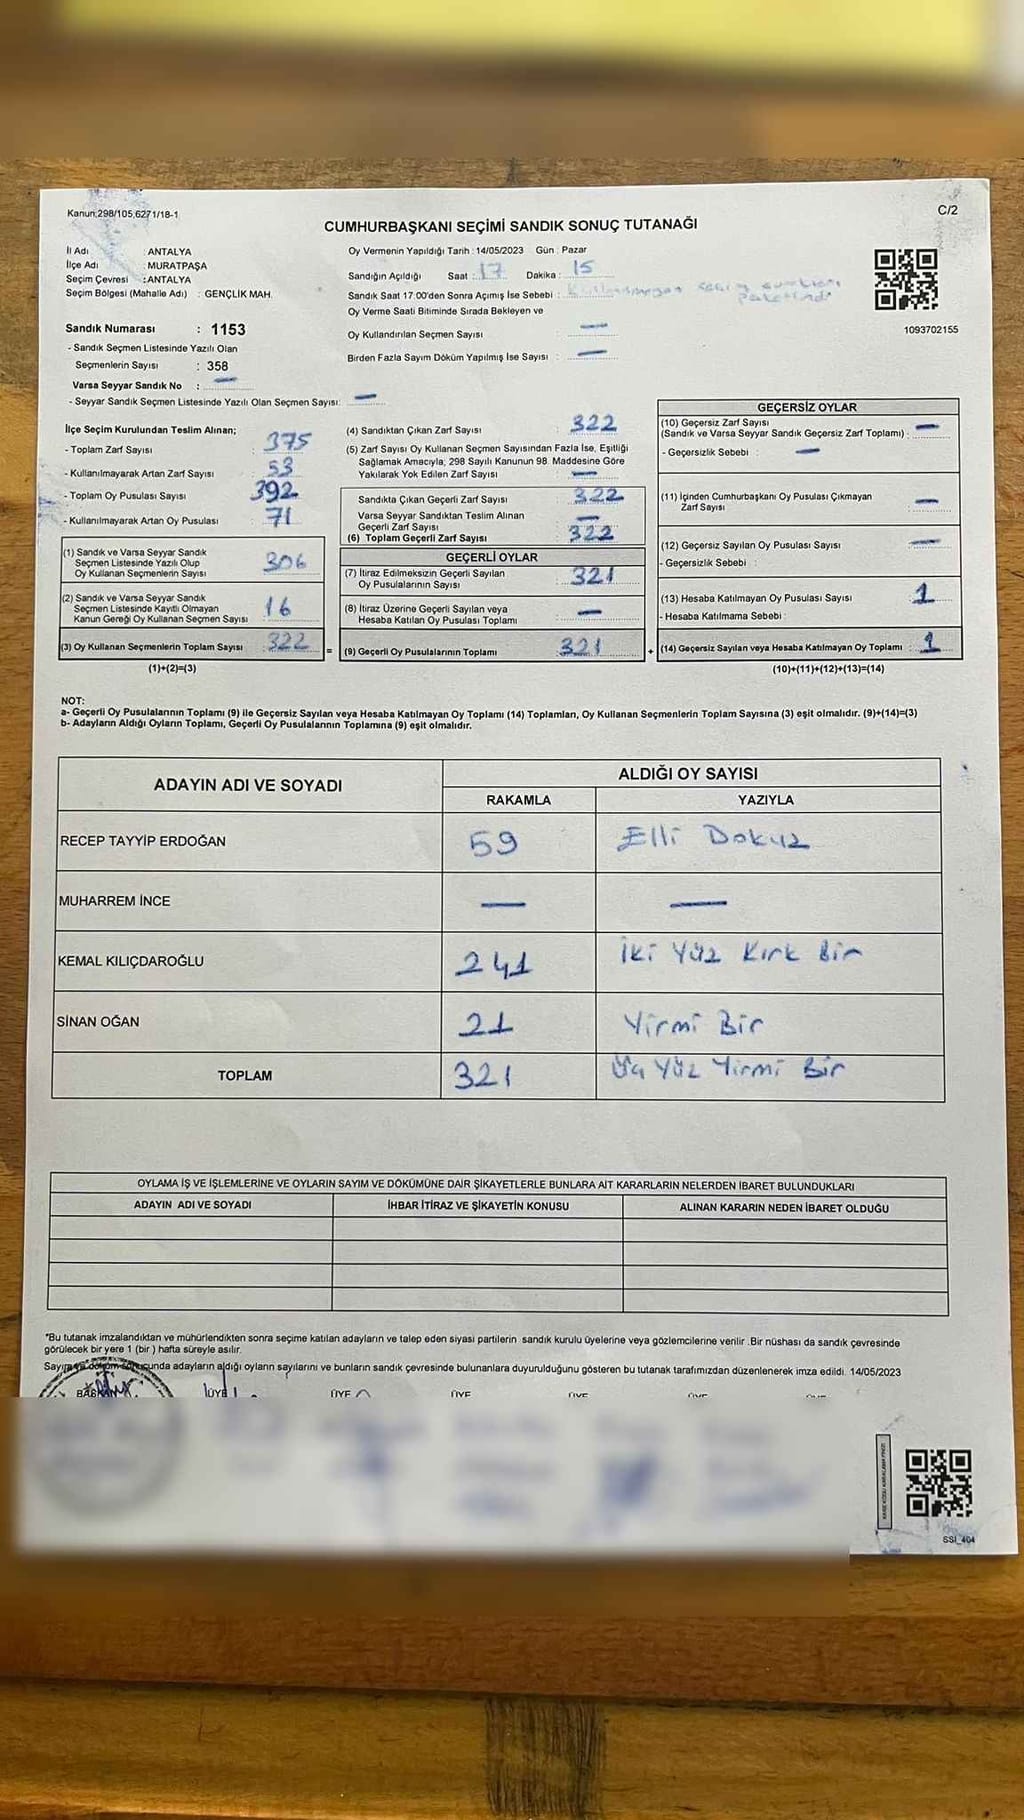 Kanun:298/105,6271/18-1
C/2
CUMHURBAŞKANI SEÇİMİ SANDIK SONUÇ TUTANAĞI
İl Adı : ANTALYA
İlçe Adı : MURATPAŞA
Seçim Çevresi : ANTALYA
Seçim Bölgesi (Mahalle Adı) : GENÇLİK MAH.
Sandık Numarası : 1153
- Sandık Seçmen Listesinde Yazılı Olan
Seçmenlerin Sayısı : 358
Varsa Seyyar Sandık No : —
- Seyyar Sandık Seçmen Listesinde Yazılı Olan Seçmen Sayısı: —
Oy Vermenin Yapıldığı Tarih : 14/05/2023 Gün : Pazar
Sandığın Açıldığı Saat : 17 Dakika : 15
Sandık Saat 17:00'den Sonra Açımış İse Sebebi : Kullanılmayan
Oy Verme Saati Bitiminde Sırada Bekleyen ve
Oy Kullandırılan Seçmen Sayısı : —
Birden Fazla Sayım Döküm Yapılmış İse Sayısı : —
1093702155
İlçe Seçim Kurulundan Teslim Alınan;
- Toplam Zarf Sayısı 375
- Kullanılmayarak Artan Zarf Sayısı 53
- Toplam Oy Pusulası Sayısı 392
- Kullanılmayarak Artan Oy Pusulası 71
(1) Sandık ve Varsa Seyyar Sandık
Seçmen Listesinde Yazılı Olup
Oy Kullanan Seçmenlerin Sayısı 306
(2) Sandık ve Varsa Seyyar Sandık
Seçmen Listesinde Kayıtlı Olmayan
Kanun Gereği Oy Kullanan Seçmen Sayısı 16
(3) Oy Kullanan Seçmenlerin Toplam Sayısı : 322
(1)+(2)=(3)
=
(4) Sandıktan Çıkan Zarf Sayısı 322
(5) Zarf Sayısı Oy Kullanan Seçmen Sayısından Fazla İse, Eşitliği
Sağlamak Amacıyla; 298 Sayılı Kanunun 98. Maddesine Göre
Yakılarak Yok Edilen Zarf Sayısı —
Sandıkta Çıkan Geçerli Zarf Sayısı 322
Varsa Seyyar Sandıktan Teslim Alınan
Geçerli Zarf Sayısı —
(6) Toplam Geçerli Zarf Sayısı 322
GEÇERLİ OYLAR
(7) İtiraz Edilmeksizin Geçerli Sayılan
Oy Pusulalarının Sayısı 321
(8) İtiraz Üzerine Geçerli Sayılan veya
Hesaba Katılan Oy Pusulası Toplamı —
(9) Geçerli Oy Pusulalarının Toplamı 321
+
GEÇERSİZ OYLAR
(10) Geçersiz Zarf Sayısı
(Sandık ve Varsa Seyyar Sandık Geçersiz Zarf Toplamı) : —
- Geçersizlik Sebebi : —
(11) İçinden Cumhurbaşkanı Oy Pusulası Çıkmayan
Zarf Sayısı : —
(12) Geçersiz Sayılan Oy Pusulası Sayısı : —
- Geçersizlik Sebebi :
(13) Hesaba Katılmayan Oy Pusulası Sayısı : 1
- Hesaba Katılmama Sebebi :
(14) Geçersiz Sayılan veya Hesaba Katılmayan Oy Toplamı : 1
(10)+(11)+(12)+(13)=(14)
NOT:
a- Geçerli Oy Pusulalarının Toplamı (9) ile Geçersiz Sayılan veya Hesaba Katılmayan Oy Toplamı (14) Toplamları, Oy Kullanan Seçmenlerin Toplam Sayısına (3) eşit olmalıdır. (9)+(14)=(3)
b- Adayların Aldığı Oyların Toplamı, Geçerli Oy Pusulalarının Toplamına (9) eşit olmalıdır.
ADAYIN ADI VE SOYADI
ALDIĞI OY SAYISI
RAKAMLA YAZIYLA
RECEP TAYYİP ERDOĞAN 59 Elli Dokuz
MUHARREM İNCE — —
KEMAL KILIÇDAROĞLU 241 İki Yüz Kırk Bir
SİNAN OĞAN 21 Yirmi Bir
TOPLAM 321 Üç Yüz Yirmi Bir
OYLAMA İŞ VE İŞLEMLERİNE VE OYLARIN SAYIM VE DÖKÜMÜNE DAİR ŞİKAYETLERLE BUNLARA AİT KARARLARIN NELERDEN İBARET BULUNDUKLARI
ADAYIN ADI VE SOYADI İHBAR İTİRAZ VE ŞİKAYETİN KONUSU ALINAN KARARIN NEDEN İBARET OLDUĞU
*Bu tutanak imzalandıktan ve mühürlendikten sonra seçime katılan adayların ve talep eden siyasi partilerin sandık kurulu üyelerine veya gözlemcilerine verilir .Bir nüshası da sandık çevresinde
görülecek bir yere 1 (bir ) hafta süreyle asılır.
Sayım ve döküm sonucunda adayların aldığı oyların sayılarını ve bunların sandık çevresinde bulunanlara duyurulduğunu gösteren bu tutanak tarafımızdan düzenlenerek imza edildi. 14/05/2023
BAŞKAN ÜYE ÜYE ÜYE ÜYE ÜYE ÜYE
SSİ_404